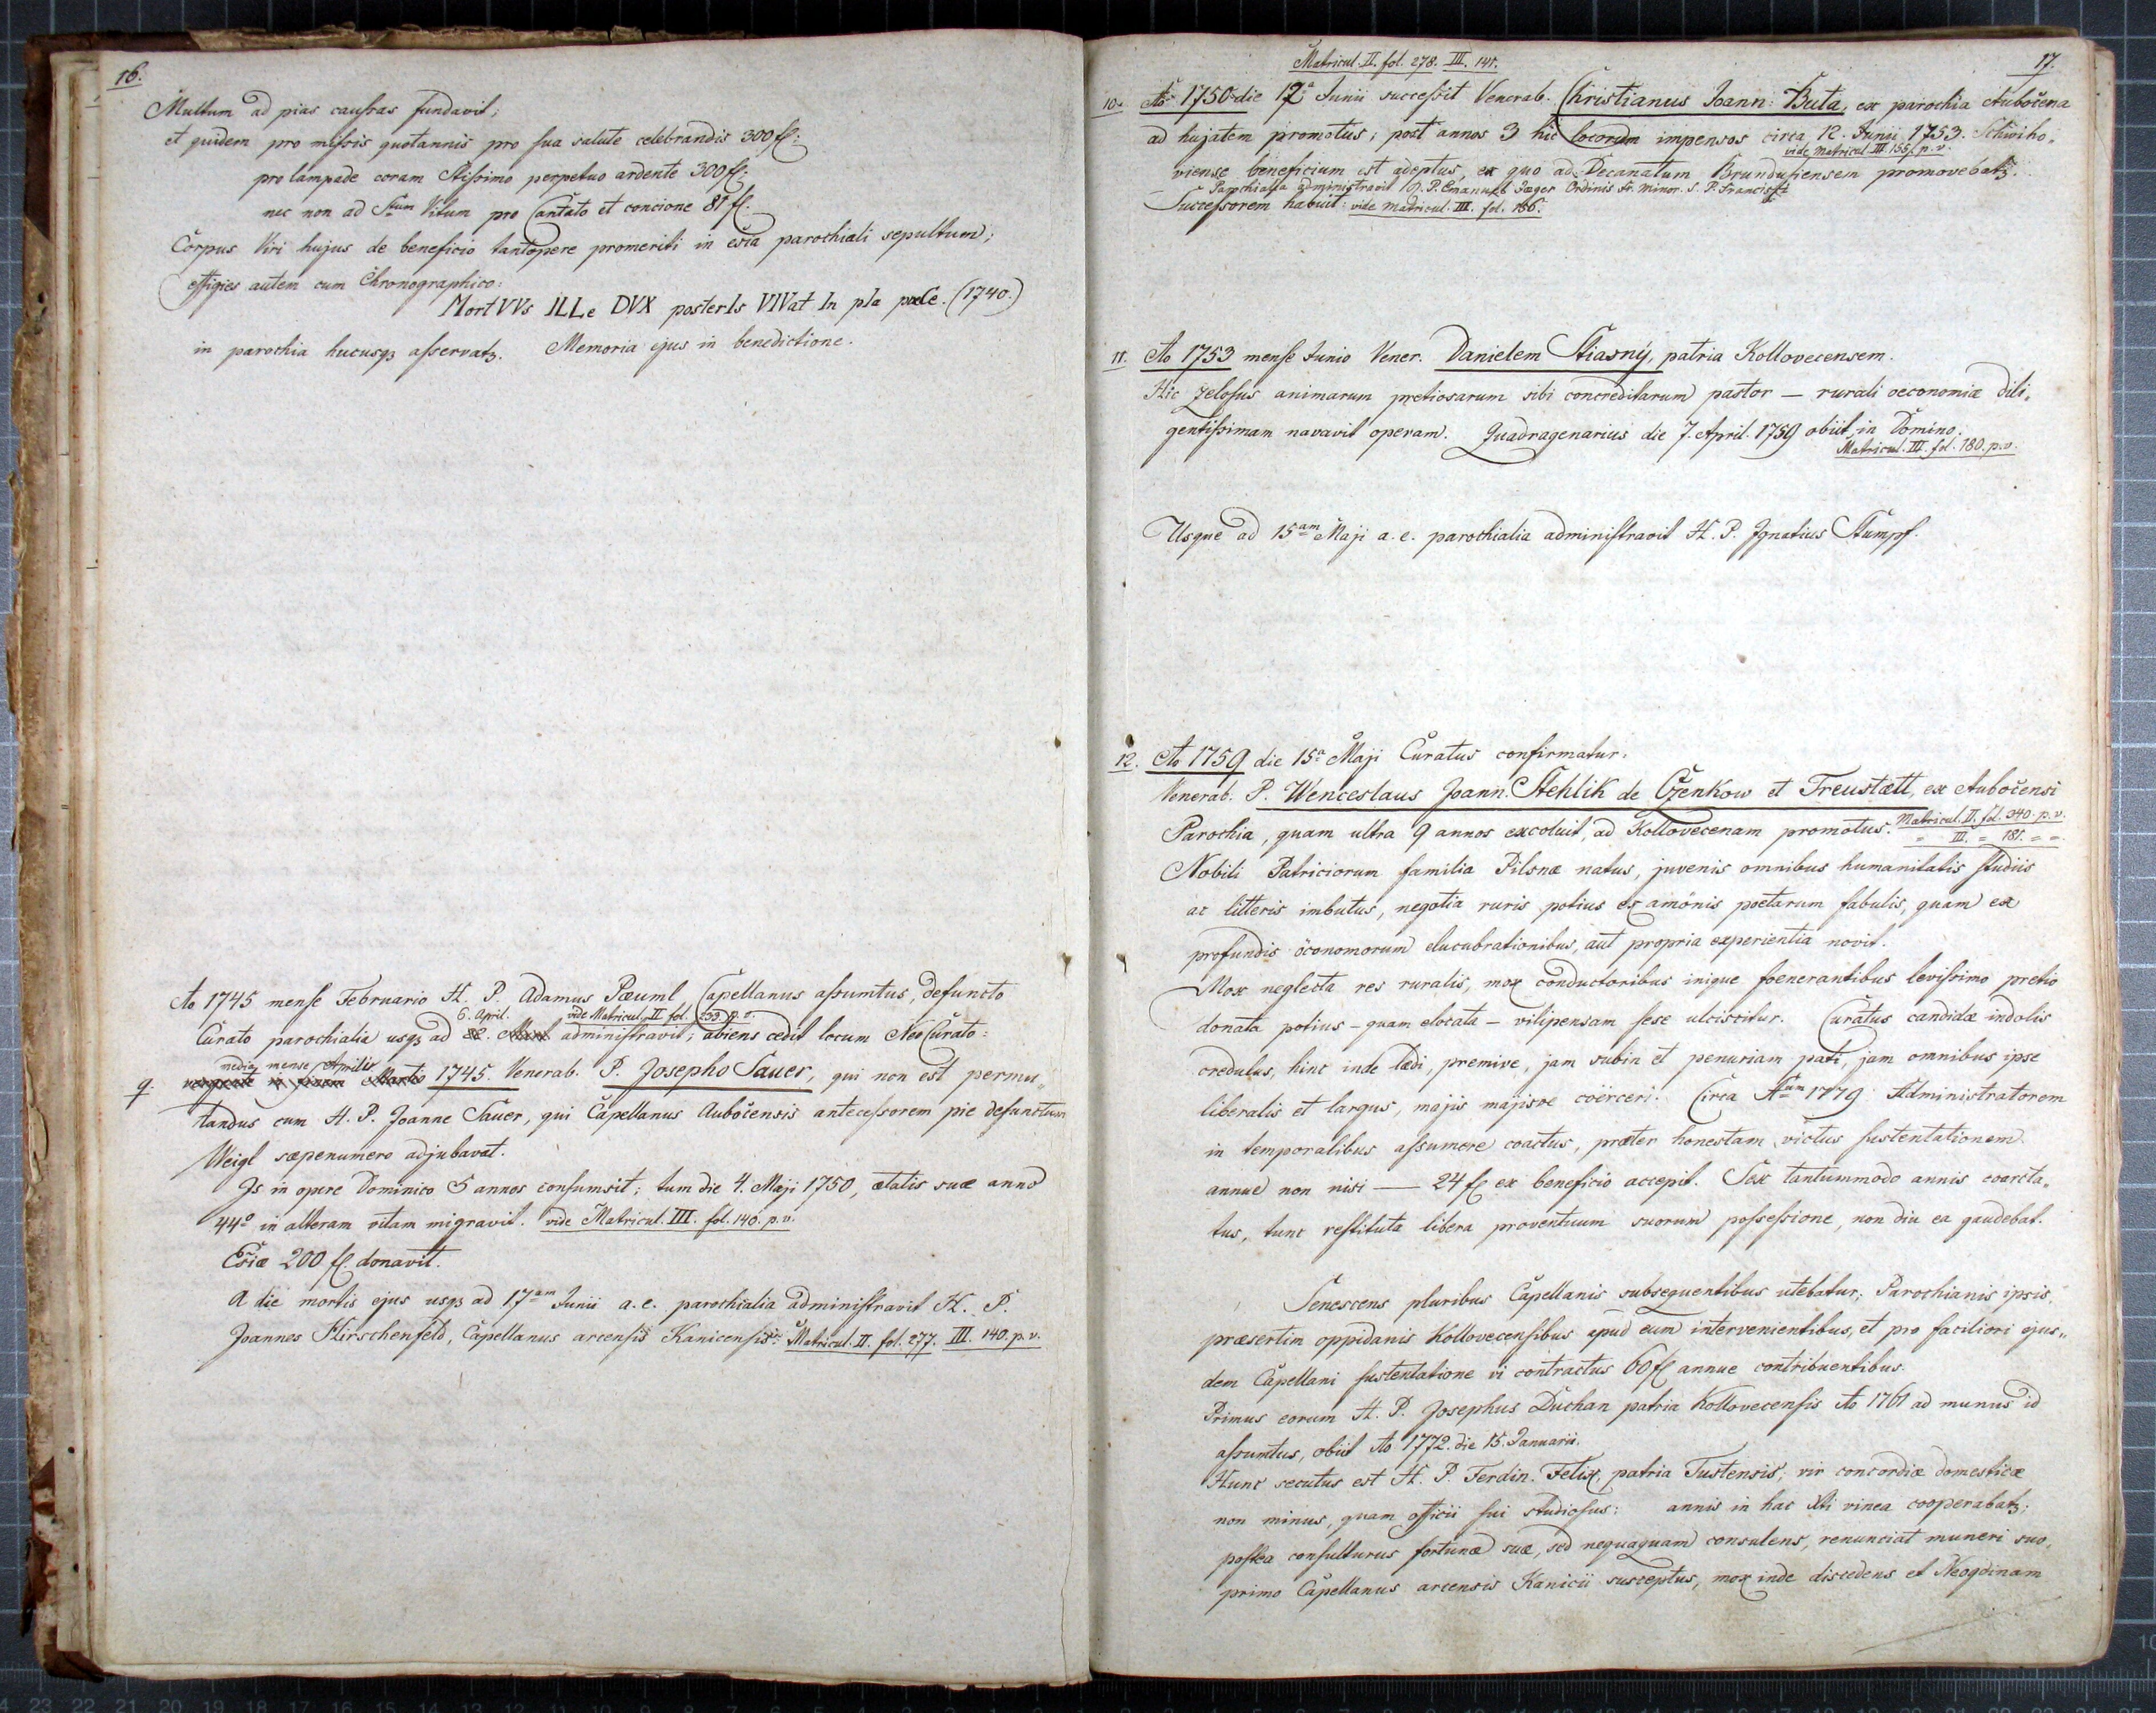 16.
Multum ad pias caussas fundavit;
et quidem pro missis quotannis pro sua salute celebrandis 300 fl:
pro lampade coram Stissimo perpetuo ardente 300 fl:
nec non ad Stum Vitum pro Cantato et concione 81 fl:
Corpus Viri hujus de beneficio tantopere promeriti in ecsia parochiali sepultum;
effigies autem cum Chronographico:
MortVVs ILLe DVX posterIs VIVat In pIa paCe. (1740.)
in parochia hucusq3 asservat3. Memoria ejus in benedictione.
Ao 1745 mense Februario H. P. Adamus Pæuml, Capellanus assumtus, defuncto
6. April. vide Matricul. II fol. 233. p. v.
Curato parochialia usq3 ad administravit; abiens cedit locum Neo Curato:
medio mense Aprilis
9. Martio 1745. Venerab. P. Josepho Sauer, qui non est permu„
tandus cum H. P. Joanne Sauer, qui Capellanus Aubočensis antecessorem pie defunctum
Weigl sæpenumero adjubavat.
Is in opere Dominico 5 annos consumsit; tum die 4. Maji 1750, ætatis suæ anno
44o in alteram vitam migravit. vide Matricul. III. fol. 140. p. v.
Ecsiæ 200 fl. donavit.
A die mortis ejus usq3 ad 17am Junii a. e. parochialia administravit H. P.
Joannes Hirschenfeld, Capellanus arcensis Kanicensis. Matricul. II. fol. 277. III. 140. p. v.
17.
Matricul. II. fol. 278. III. 141.
10. Ao 1750 die 17a Junii successit Venerab. Christianus Joann: Buta, ex parochia Aubočena
ad hujatem promotus; post annos 3 hic locorum impensos circa 12. Junii 1753. Schwiho„
vide Matricul. III. 155. p. v.
viense beneficium est adeptus, ex quo ad Decanatum Brundusiensem promovebat3.
Parochialia administravit P. Emanuel Jæger Ordinis Fr. Minor. S. P. Francisci
Successorem habuit: vide Matricul. III. fol. 186.
11. Ao 1753 mense Junio Vener. Danielem Stiasný, patria Kollovecensem.
Hic zelosus animarum pretiosarum sibi concreditarum pastor — rurali oeconomiæ dili„
gentissimam navavit operam. Quadragenarius die 7. April. 1759 obiit in Domino.
Matricul. III. fol. 180. p. v.
Usque ad 15am Maji a. e. parochialia administravit H. P. Ignatius Stumpf.
12. Ao 1759 die 15a Maji Curatus confirmatur.
Venerab. P. Wenceslaus Joann. Stehlik de Czenkow et Treustætt, ex Aubočensi
Parochia, quam ultra 9 annos excoluit, ad Kollovecenam promotus. Matricul. II. fol. 340. p. v.
" III. = 181. = =
Nobili Patriciorum familia Pilsnæ natus, juvenis omnibus humanitatis studiis
ac litteris imbutus, negotia ruris potius ex amönis poetarum fabulis, quam ex
profundis öconomorum elucubrationibus, aut propria experientia novit.
Mox neglecta res ruralis, mox conductoribus inique foenerantibus levissimo pretio
donata potius – quam elocata – vilipensam sese ulciscitur. Curatus candidæ indolis
credulus, hinc inde lædi, premive, jam subin et penuriam pati, jam omnibus ipse
liberalis et largus, majus majisve coërceri. Circa Aum 1779 Administratorem
in temporalibus assumere coactus, præter honestam victus sustentationem
annue non nisi — 24 fl ex beneficio accepit. Sex tantummodo annis coarcta„
tus, tunc restituta libera proventuum suorum possessione, non diu ea gaudebat.
Senescens pluribus Capellanis subsequentibus utebatur; Parochianis ipsis,
præsertim oppidanis Kollovecensibus apud eum intervenientibus, et pro faciliori ejus„
dem Capellani sustentatione vi contractus 60 fl annue contribuentibus.
Primus eorum H. P. Josephus Duchan patria Kollovecensis Ao 1761 ad munus id
assumtus, obiit Ao 1772. die 15. Januarii.
Hunc secutus est H. P. Ferdin. Felix, patria Tustensis, vir concordiæ domesticæ
non minus, quam officii sui studiosus: annis in hac Xti vinea cooperabat3;
postea consulturus fortunæ suæ, sed nequaquam consulens, renunciat muneri suo,
primo Capellanus arcensis Kanicii susceptus, mox inde discedens et Neogdinam